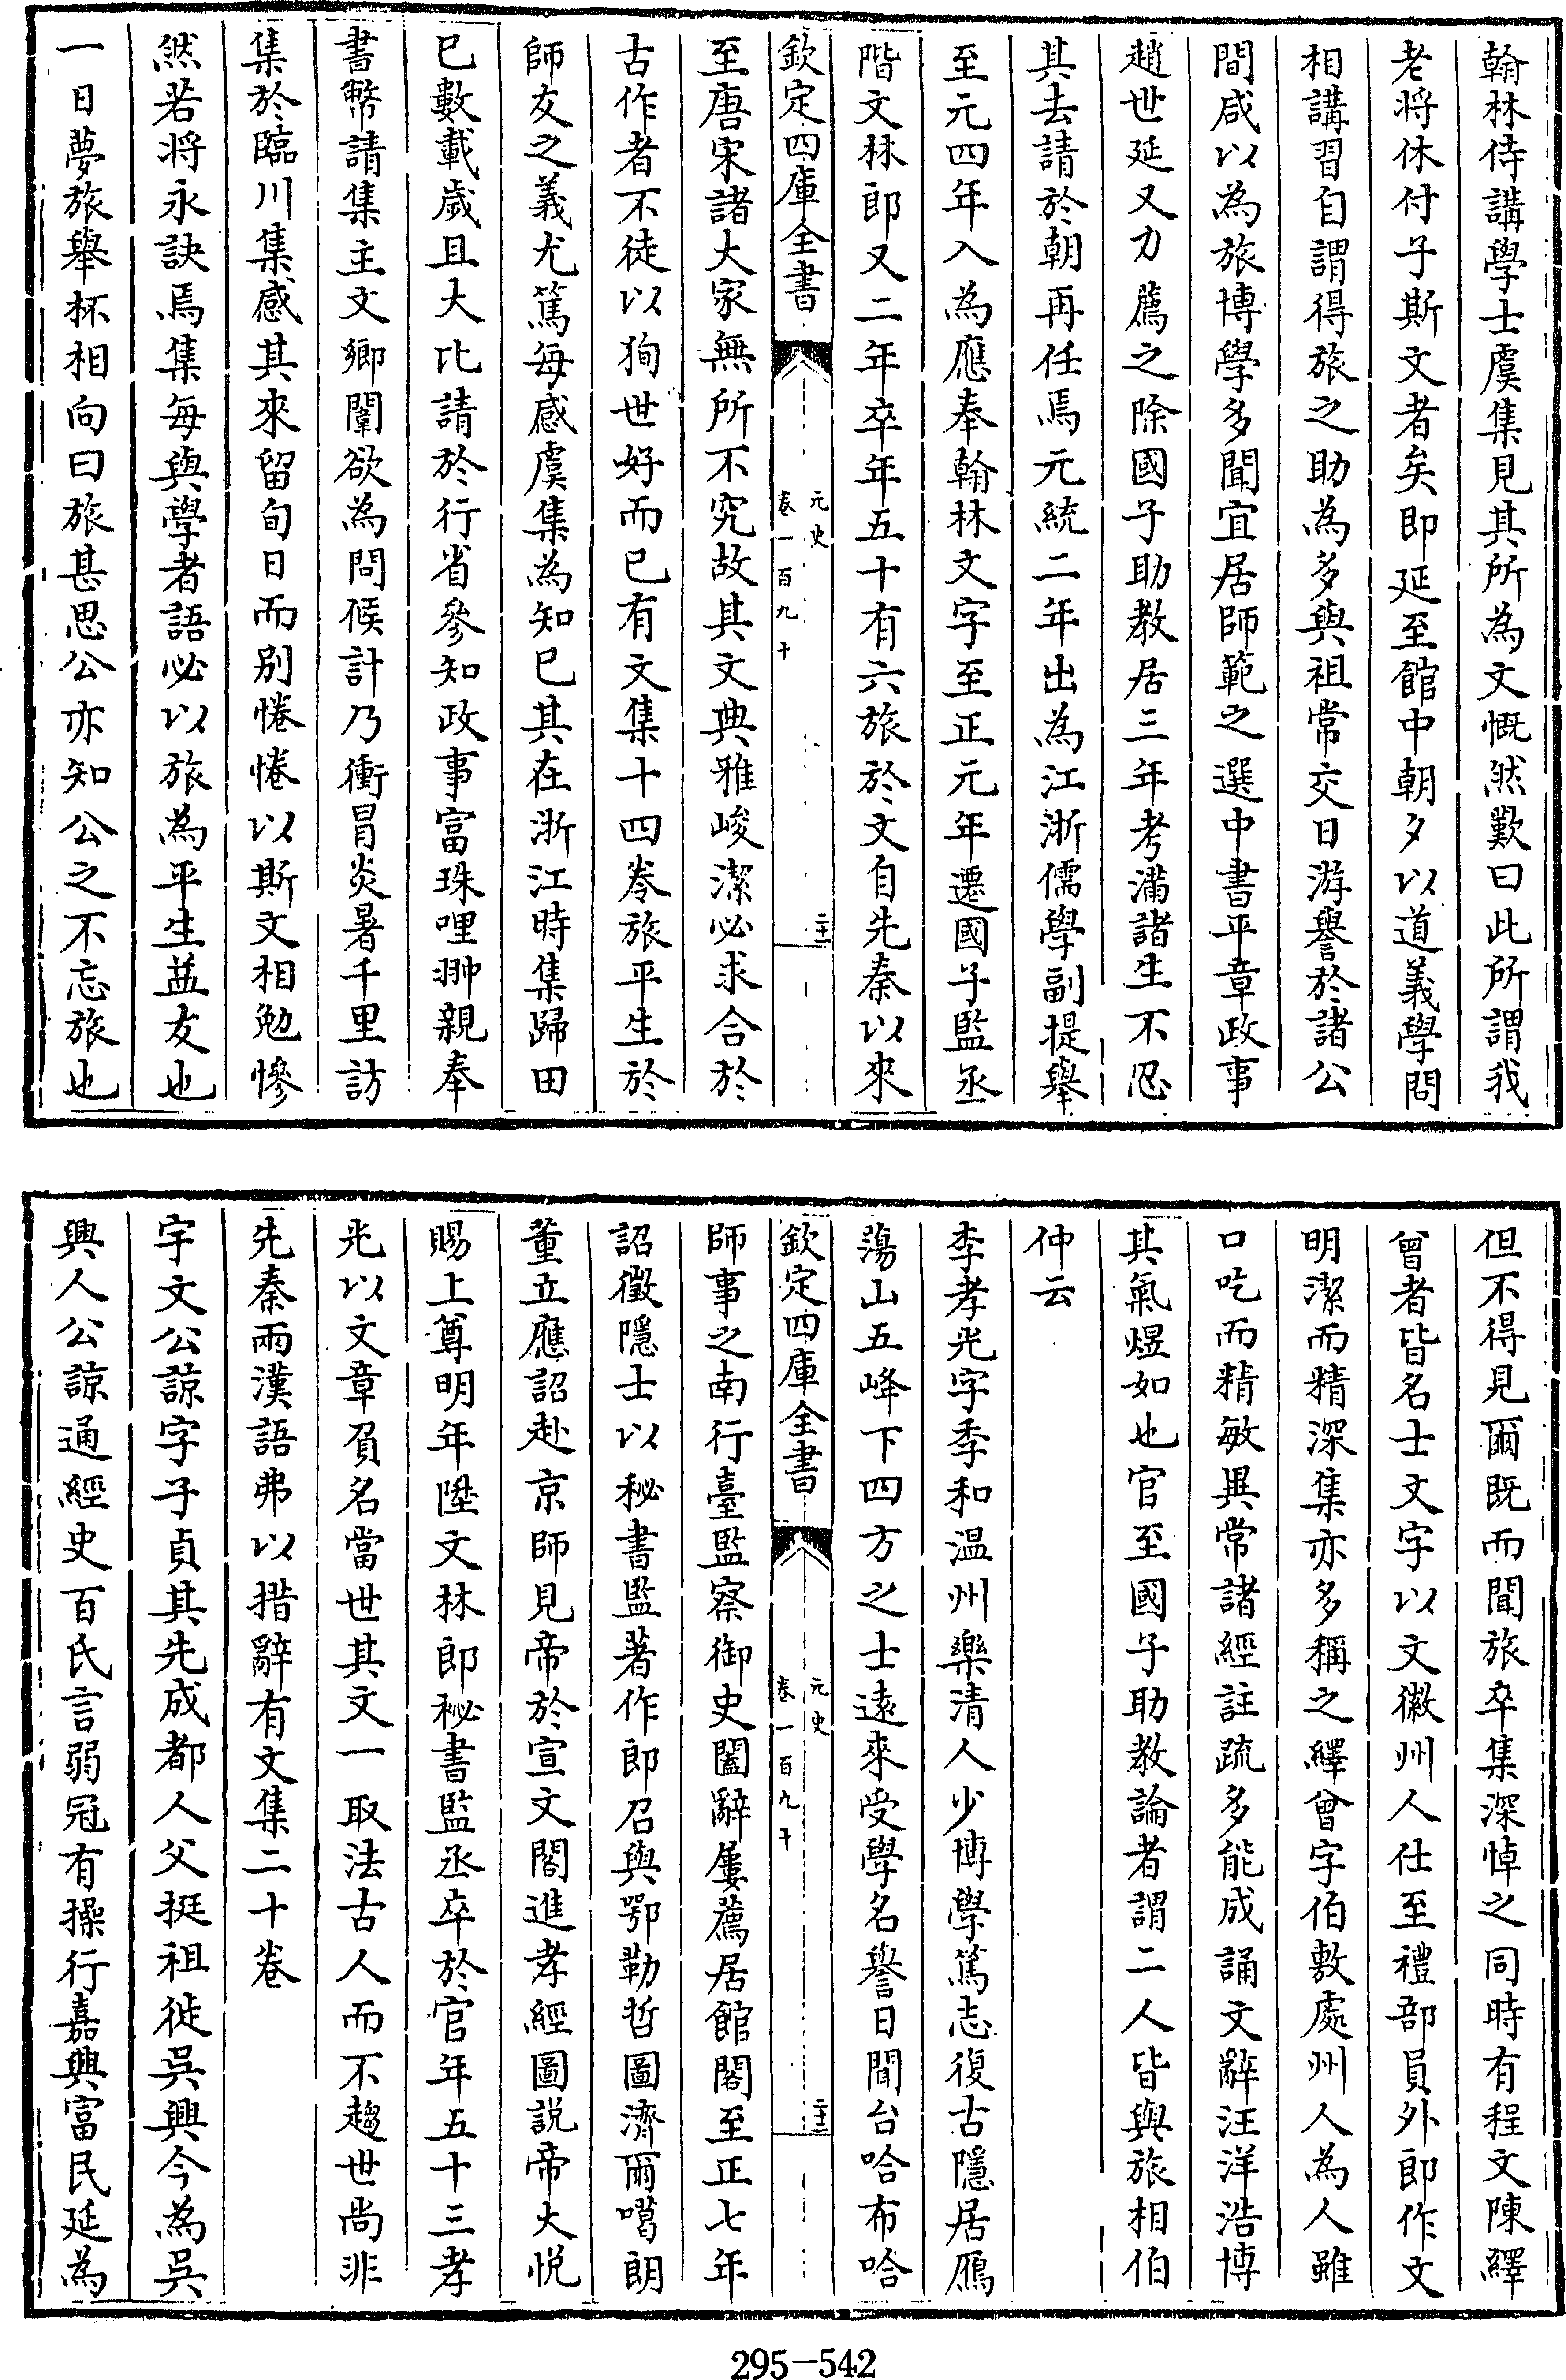 翰林侍講學士虞集見其所為文慨然歎曰此所謂我
老將休付子斯文者矣即延至館中朝夕以道義學問
相講習自謂得旅之助為多與祖常交日游譽於諸公
間咸以為旅博學多聞宜居師範之選中書平章政事
趙世延又力薦之除國子助教居三年考滿諸生不忍
其去請於朝再任焉元統二年出為江浙儒學副提舉
至元四年入為應奉翰林文字至正元年遷國子監丞
階文林郎又二年卒年五十有六旅於文自先秦以來
欽定四庫全書
元史
卷一百九十
二十一
至唐宋諸大家無所不究故其文典雅峻潔必求合於
古作者不徒以狥世好而已有文集十四卷旅平生於
師友之義尤篤每感虞集為知已其在浙江時集歸田
已數載歲且大比請於行省參知政事富珠哩翀親奉
書幣請集主文鄉闈欲為問候計乃衝冒炎暑千里訪
集於臨川集感其來留旬日而别惓惓以斯文相勉慘
然若將永訣焉集每與學者語必以旅為平生益友也
一日夢旅舉杯相向曰旅甚思公亦知公之不忘旅也
但不得見爾既而聞旅卒集深悼之同時有程文陳繹
曾者皆名士文字以文徽州人仕至禮部員外郎作文
明潔而精深集亦多稱之繹曾字伯敷處州人為人雖
口吃而精敏異常諸經註疏多能成誦文辭汪洋浩博
其氣煜如也官至國子助教論者謂二人皆與旅相伯
仲云
李孝光字季和温州樂清人少博學篤志復古隱居鴈
蕩山五峰下四方之士遠來受學名譽日聞台哈布哈
欽定四庫全書
元史
卷一百九十
二十二
師事之南行臺監察御史闔辭屢薦居館閣至正七年
詔徵隱士以秘書監著作郎召與鄂勒哲圖濟爾噶朗
董立應詔赴京師見帝於宣文閣進孝經圖説帝大悦
賜上尊明年陞文林郎祕書監丞卒於官年五十三孝
光以文章負名當世其文一取法古人而不趨世尚非
先秦兩漢語弗以措辭有文集二十卷
宇文公諒字子貞其先成都人父挺祖徙吳興今為吳
興人公諒通經史百氏言弱冠有操行嘉興富民延為
295-542